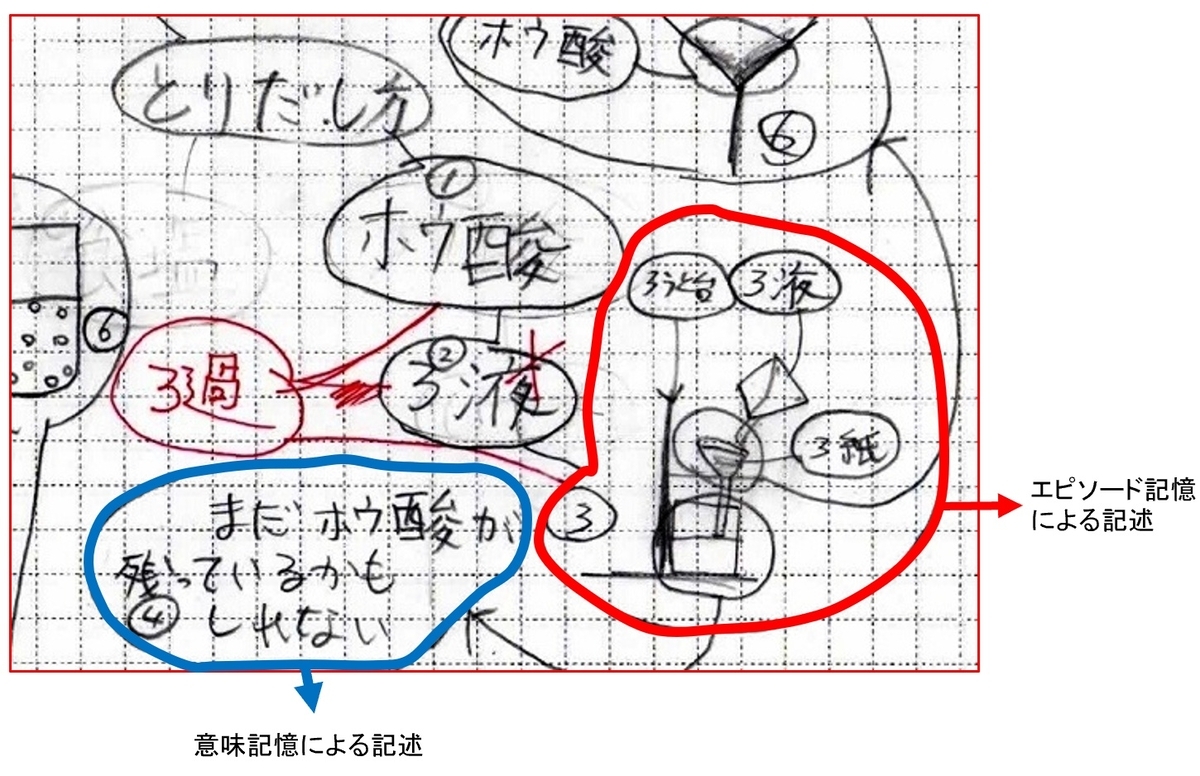 ホウ酸
⑥
とりだし方
①
ホウ酸
ろ台
ろ液
⑥
ろ過
②
ろ液
ろ紙
③
まだホウ酸が
残っているかも
④ しれない
エピソード記憶
による記述
意味記憶による記述